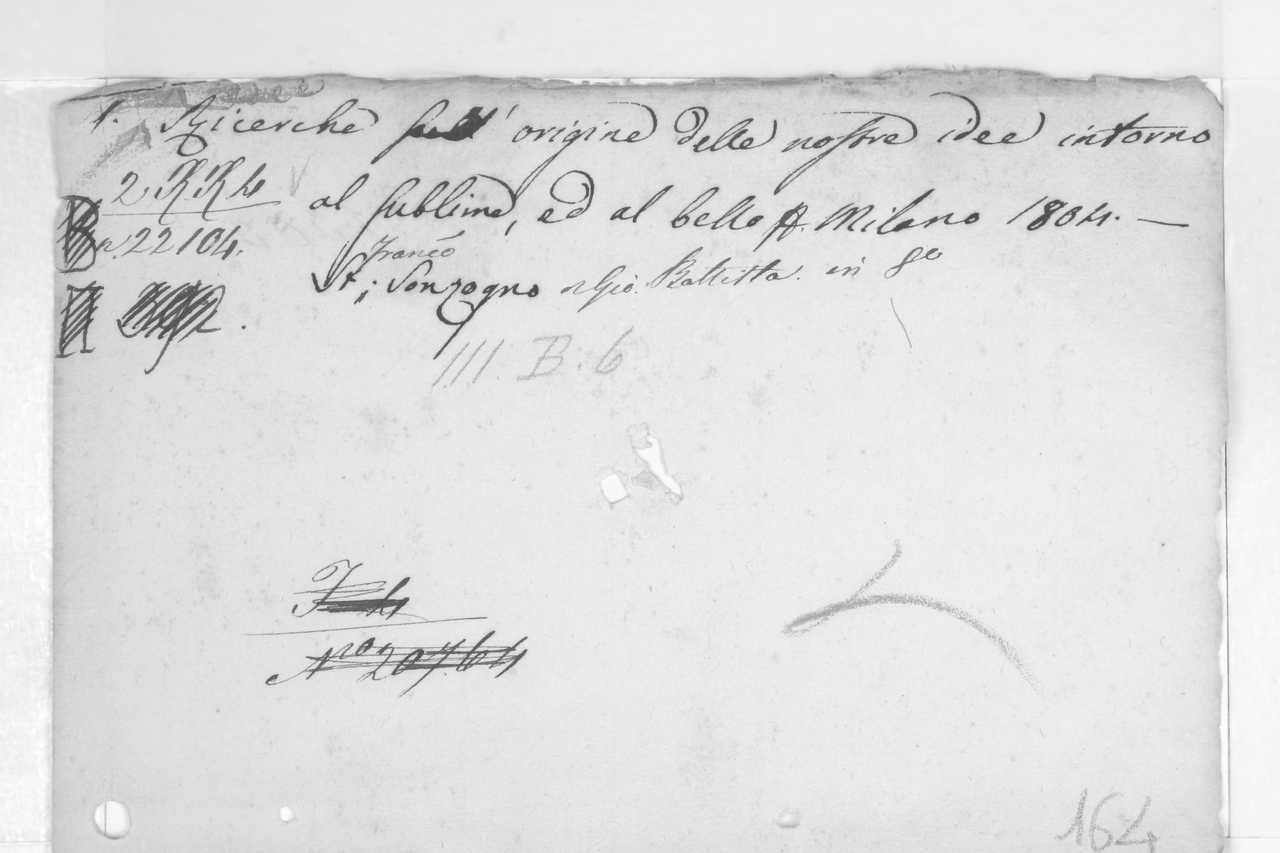 1. Ricerche sull' origine delle nostre idee intorno
2 RR4 al sublime, ed al bello 8. Milano 1804. —
n. 22104.
Franco
St; Sonzogno e Gio: Battista. in 8o
III. B. 6
Nro 20764
164